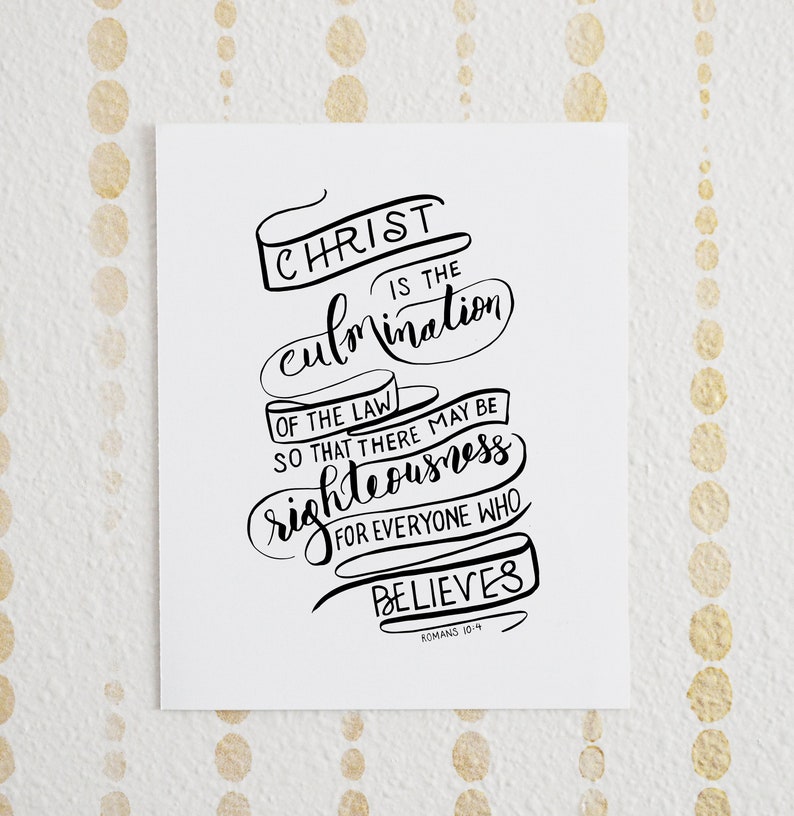 CHRIST
IS THE
culmination
OF THE LAW
SO THAT THERE MAY BE
righteousness
FOR EVERYONE WHO
BELIEVES
ROMANS 10:4